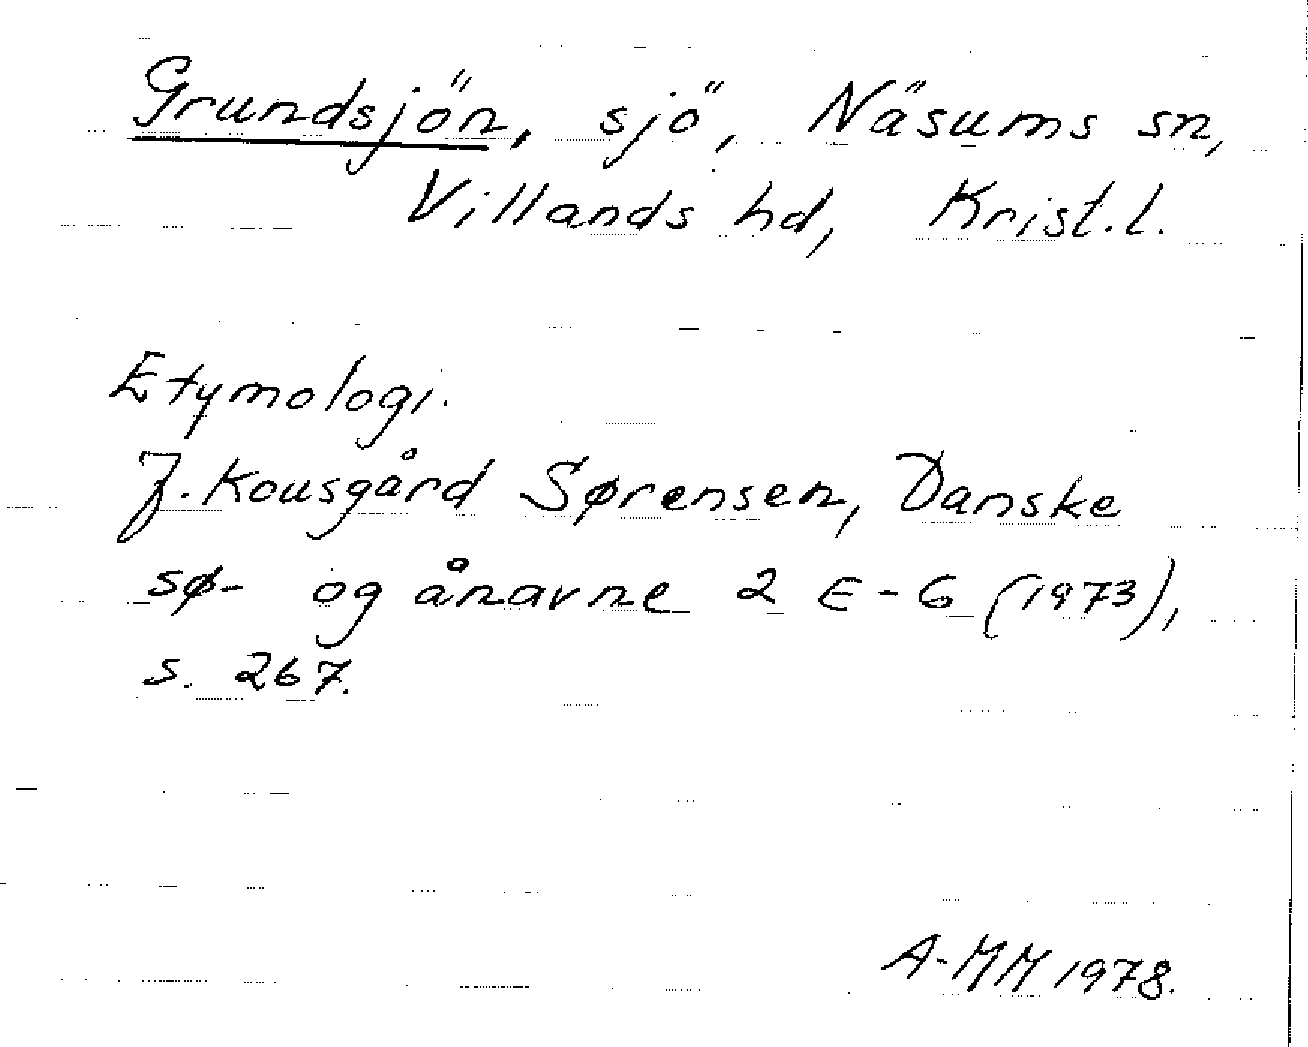 Grundsjön, sjö, Näsums sn,
Villands hd, Krist.l.
Etymologi.
J. Kousgård Sørensen, Danske
sø- og ånavne 2 E-G (1973),
s. 267.
A-MM 1978.